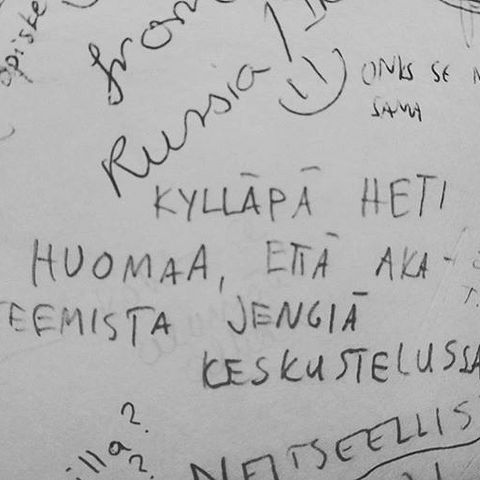 opiske
from
Russia
ONKS SE
SAMA
KYLLÄPÄ HETI
HUOMAA, ETTÄ AKA-
TEEMISTA JENGIÄ
KESKUSTELUSSA
illa?
?
NEITSEELLIS